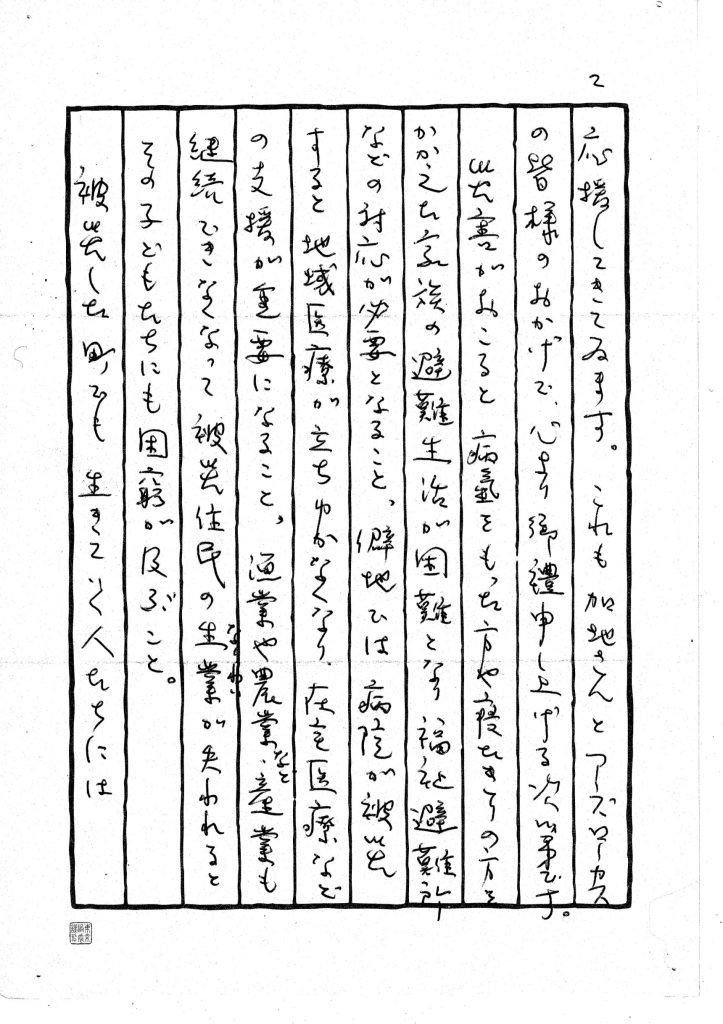 2
応援してきてゐます。これも加地さんとアーズローカス
の皆様のおかげで、心より御禮申し上げる次第です。
災害がおこると病氣をもった方や寝たきりの方を
かかえた家族の避難生活が困難となり福祉避難所
などの対応が必要となること、僻地では病院が被災
すると地域医療が立ちゆかなくなり、在宅医療など
の支援が重要になること、漁業や農業など産業も
継続できなくなって被災住民の生業が失われると
なりわい
その子どもたちにも困窮が及ぶこと。
被災した町でも生きていく人たちには